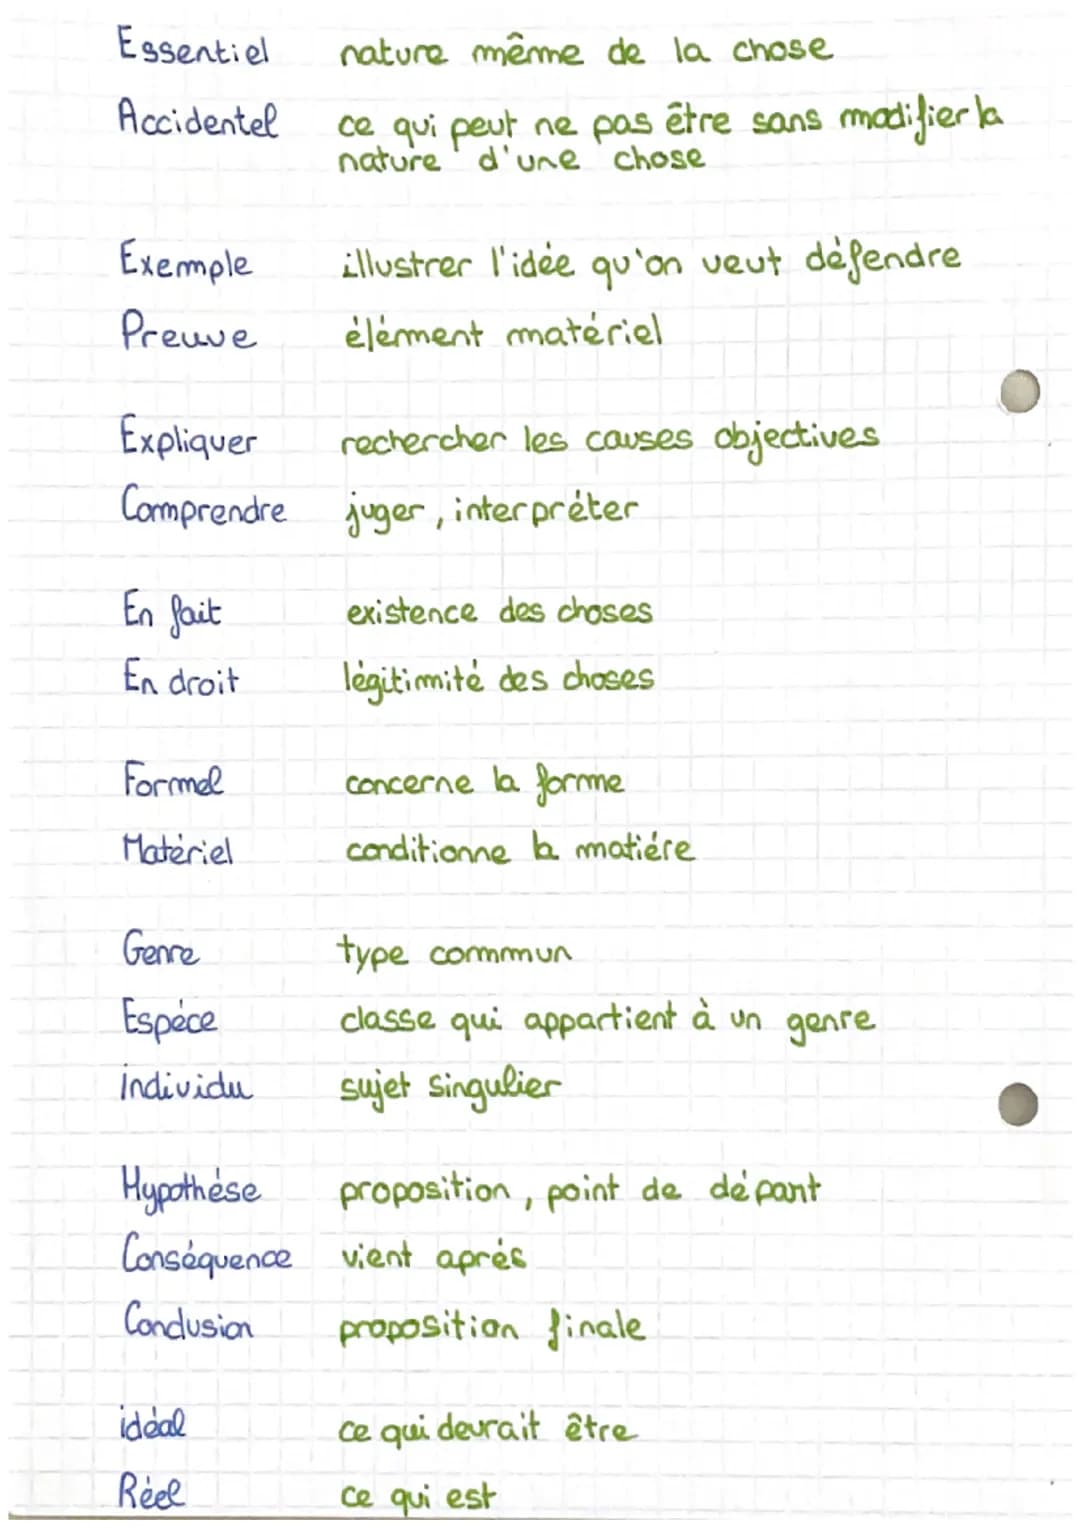 Essentiel nature même de la chose
Accidentel ce qui peut ne pas être sans modifier la
nature d'une chose
Exemple illustrer l'idée qu'on veut défendre
Preuve élément matériel
Expliquer rechercher les causes objectives
Comprendre juger, interpréter
En fait existence des choses
En droit légitimité des choses
Formel concerne la forme
Matériel conditionne la matiére
Genre type commun
Espéce classe qui appartient à un genre
individu sujet singulier
Hypothése proposition, point de départ
Conséquence vient aprés
Conclusion proposition finale
idéal ce qui devrait être
Réel ce qui est